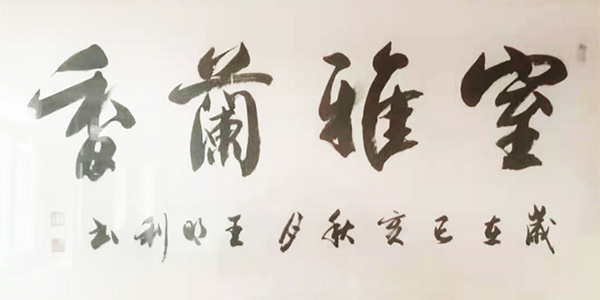 室雅蘭香
歲在己亥秋月王明利书